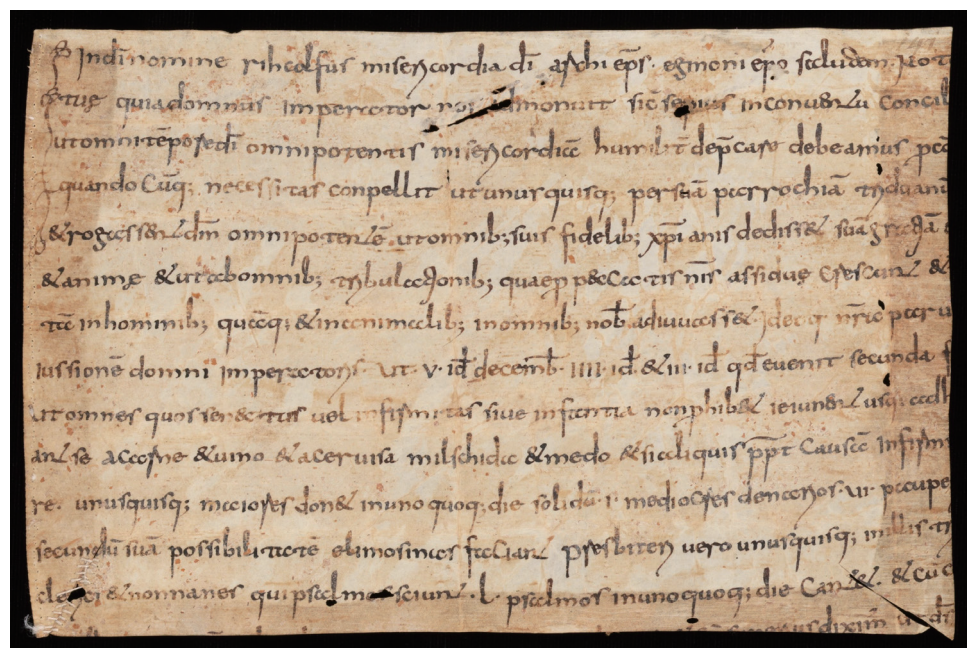 In dī nomine rihcolfus misericordia dī archi ep̄s. eginoni ep̄o salutem. Not
quia domnus imperator admonuit sic sepius in conuentu concil
ut omni tēpore dī omnipotentis misericordiā humilit dep̄care debeamus
quando cūq; necessitas conpellit ut unusquisq; per suā parrochiā triduanu
& rogass&ur dm̄ omnipotentē ut omnib; suis fidelib; xp̄ianis dedisset suā gratiā
& animę & ut ab omnib; tribulationib; quae p̄ peccatis nr̄is assiduę crescunt &
tā in hominib; quāq; & in animalib; in omnib; nob̄ adiuuass&. Ideoq nr̄ā par
iussionē domni imperatoris. ut .V. id̄ decemb̄ IIII. id̄ & III. id̄ qd̄ euenit secunda
ut omnes quos senectus uel infirmitas siue infantia non p̄hib& ieiunent usq; ad
ant se a carne & uino & a ceruisa milschida & medo & si aliquis pp̄t causā infirm
re. unusquisq; maiores don& in uno quoq; die solidū .I. mediocres denarios .VI. paupe
secundū suā possibilitatē elimosinas faciant presbiteri uero unusquisq; missas
clerici & nonnanes qui psalmos sciunt .L. psalmos in uno quoq; die cant&. & cū
diximus ut